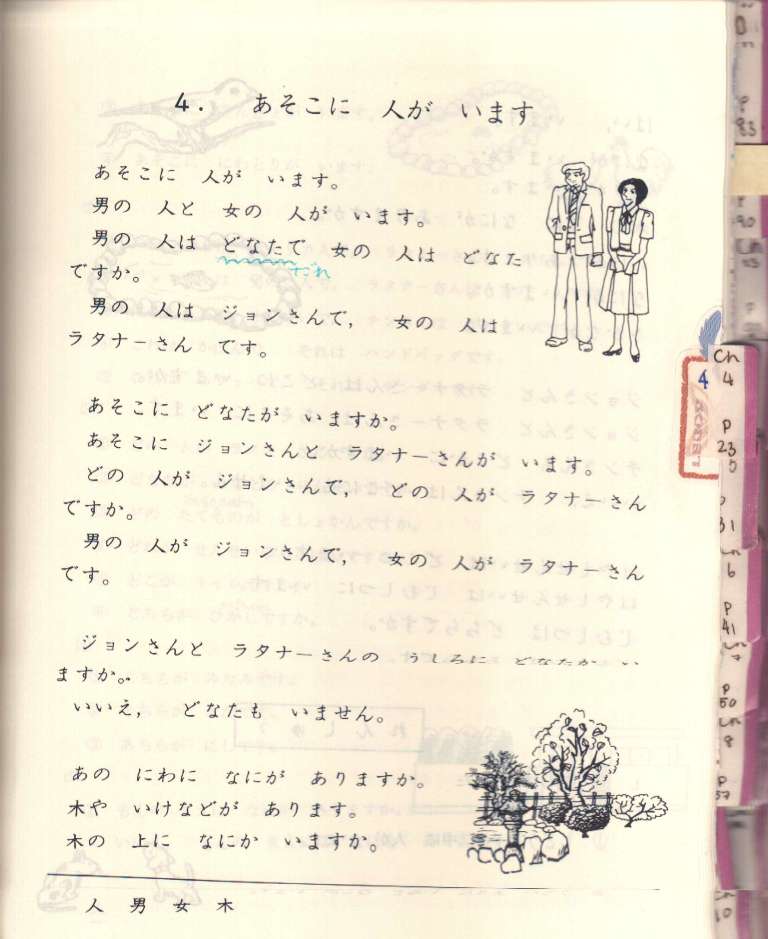 4. あそこに 人が います
あそこに 人が います。
男の 人と 女の 人が います。
男の 人は どなたで 女の 人は どなた
だれ
ですか。
男の 人は ジョンさんで, 女の 人は
ラタナーさん です。
あそこに どなたが いますか。
あそこに ジョンさんと ラタナーさんが います。
どの 人が ジョンさんで, どの 人が ラタナーさん
ですか。
男の 人が ジョンさんで, 女の 人が ラタナーさん
です。
ジョンさんと ラタナーさんの うしろに どなたか い
ますか。
いいえ, どなたも いません。
あの にわに なにが ありますか。
木や いけなどが あります。
木の 上に なにか いますか。
人 男 女 木
P
83
90
Ch
4
4
P
23
5
31
6
P
41
P
50
8
P
57
10